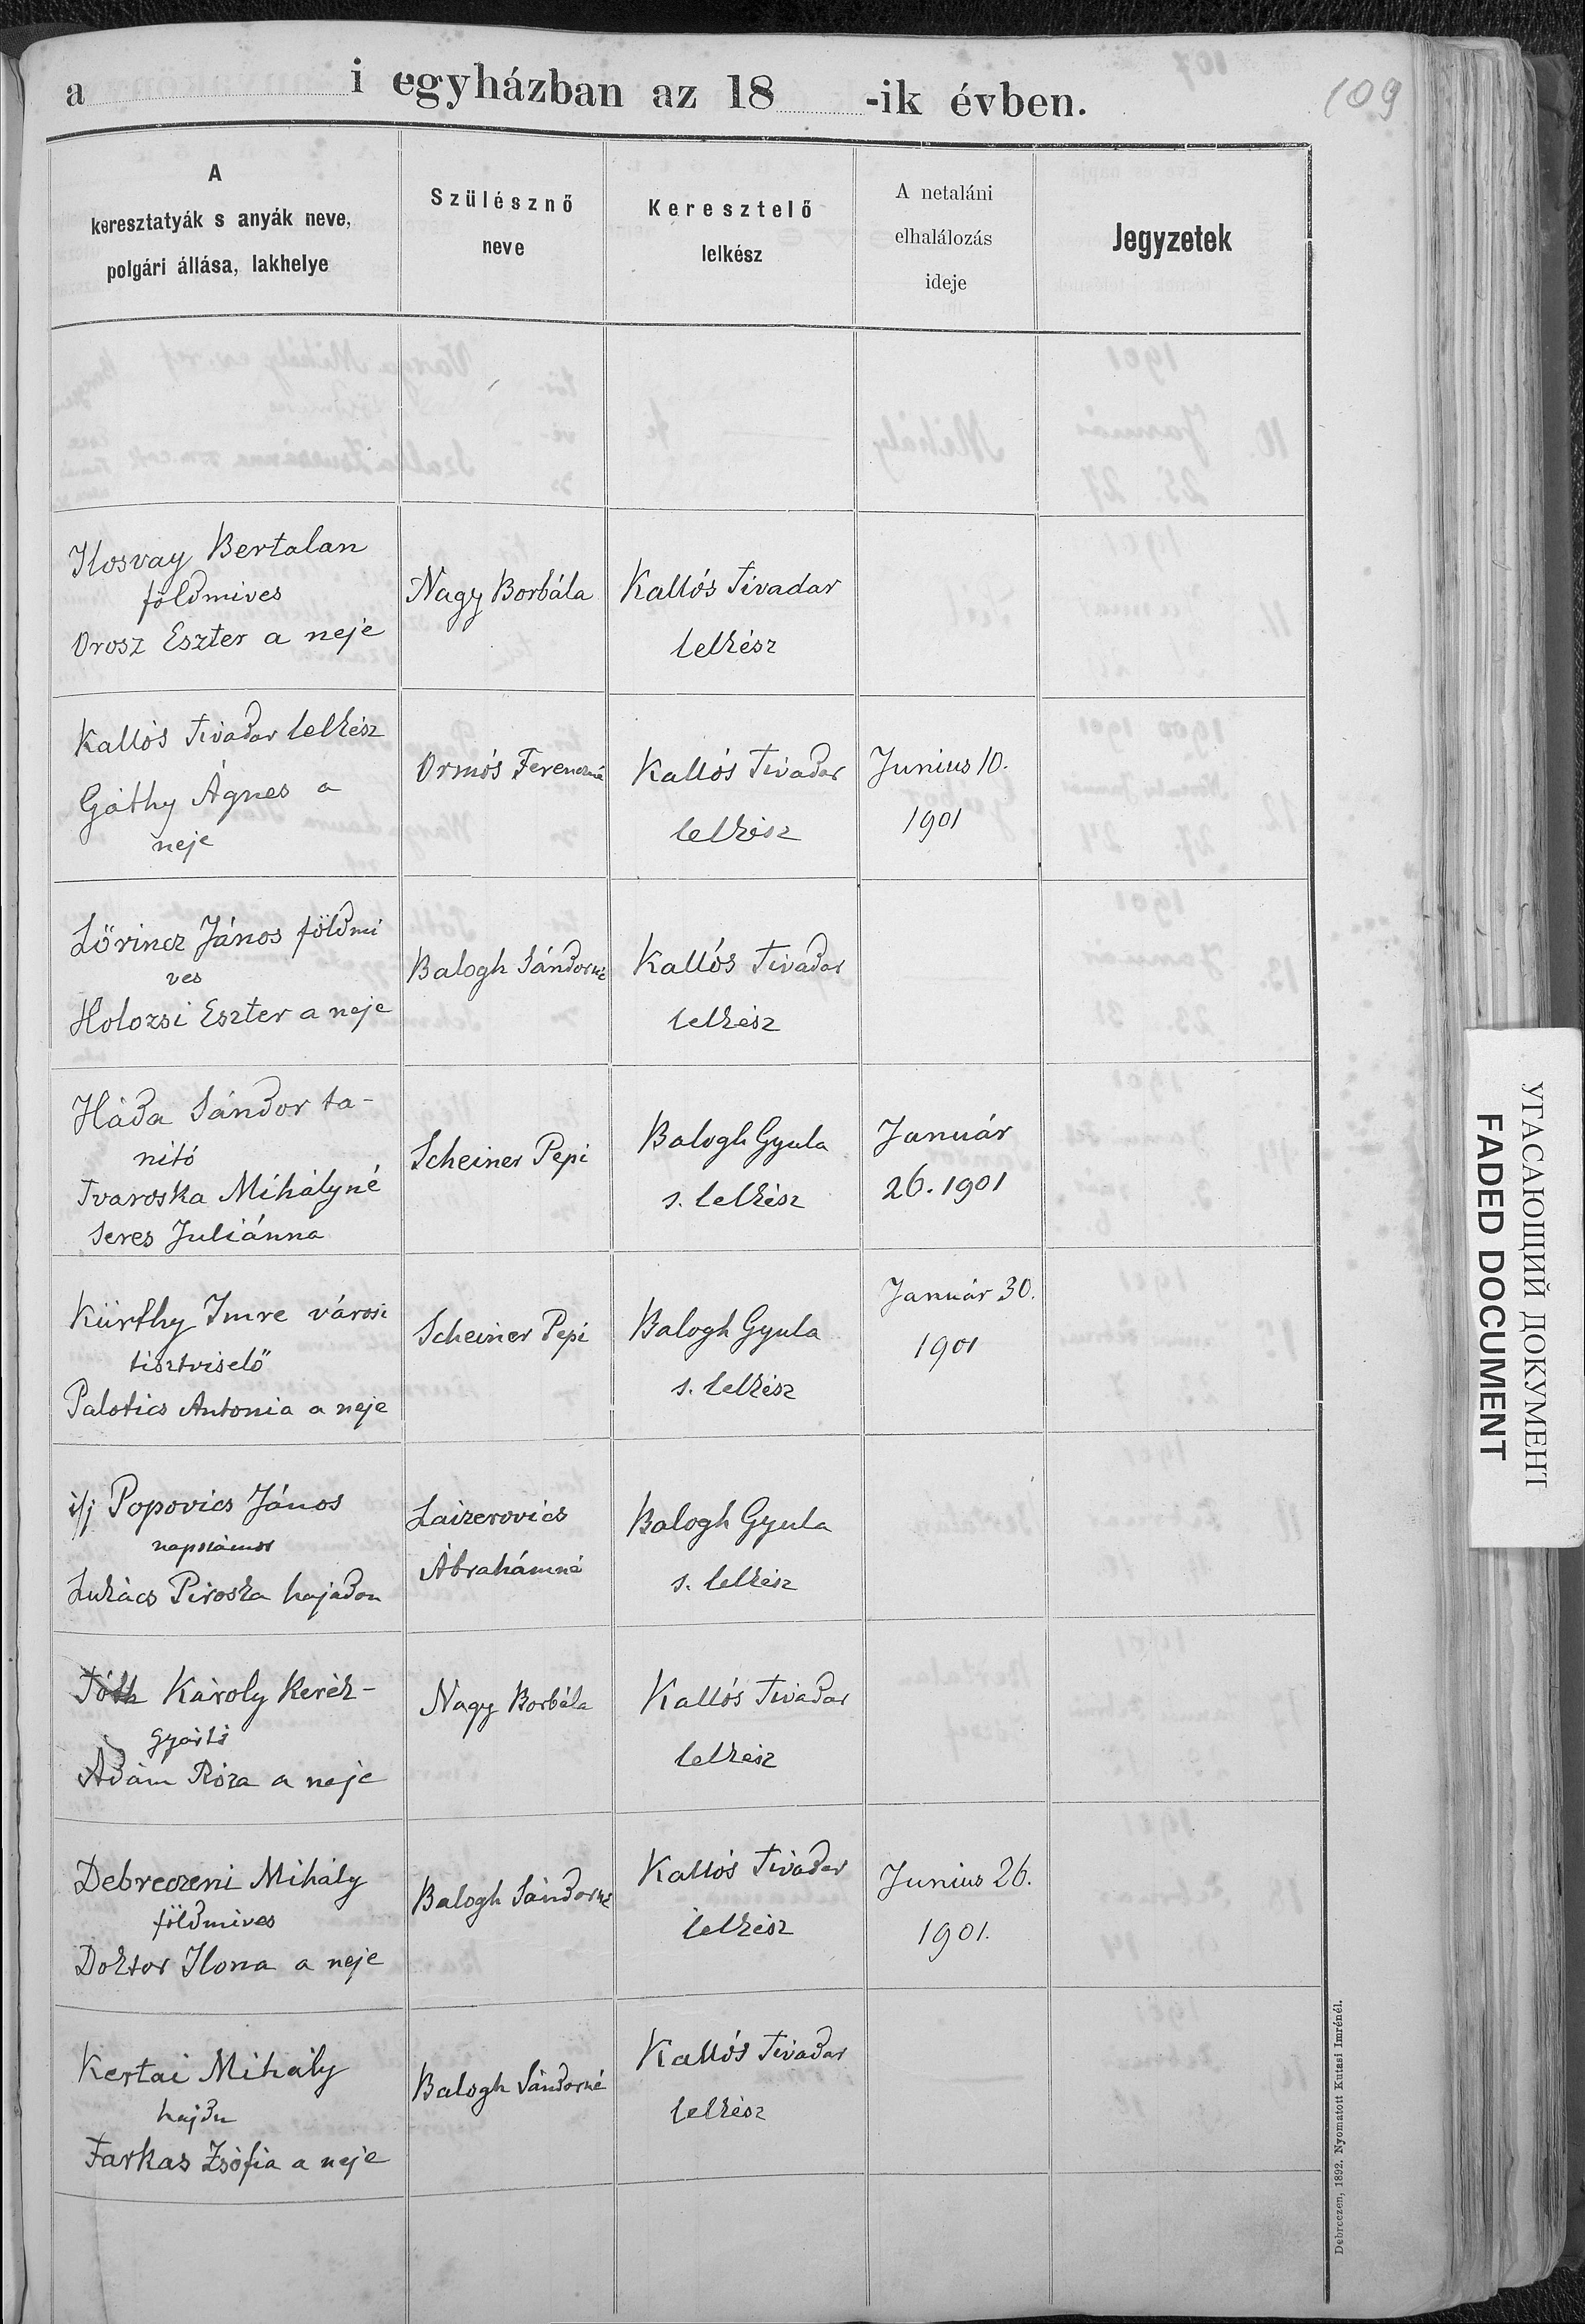 a i egyházban az 18 -ik évben.
109
A
keresztatyák s anyák neve,
polgári állása, lakhelye
Szülésznő
neve
Keresztelő
lelkész
A netaláni
elhalálozás
ideje
Jegyzetek
Ilosvay Bertalan
földmives
Orosz Eszter a neje
Nagy Borbála
Kallós Tivadar
lelkész
Kallós Tivadar lelkész
Gáthy Ágnes a
neje
Ormós Ferenczné
Kallós Tivadar
lelkész
Junius 10.
1901
Lőrincz János földmi
ves
Holozsi Eszter a neje
Balogh Sándorné
Kallós Tivadar
lelkész
Háda Sándor ta-
nitó
Tvaroska Mihályné
Seres Juliánna
Scheiner Pepi
Balogh Gyula
s. lelkész
Január
26. 1901
Kürthy Imre városi
tisztviselő
Palotics Antonia a neje
Scheiner Pepi
Balogh Gyula
s. lelkész
Január 30.
1901
ifj Popovics János
napszámos
Lukács Piroska hajadon
Laizerovics
Ábrahámné
Balogh Gyula
s. lelkész
Tóth Károly kerék-
gyártó
Ádám Róza a neje
Nagy Borbála
Kallós Tivadar
lelkész
Debreczeni Mihály
földmives
Doktor Ilona a neje
Balogh Sándorné
Kallós Tivadar
lelkész
Junius 26.
1901.
Kertai Mihály
hajdu
Farkas Zsófia a neje
Balogh Sándorné
Kallós Tivadar
lelkész
Debreczen, 1892. Nyomatott Kutasi Imrénél.
УГАСАЮЩИЙ ДОКУМЕНТ
FADED DOCUMENT